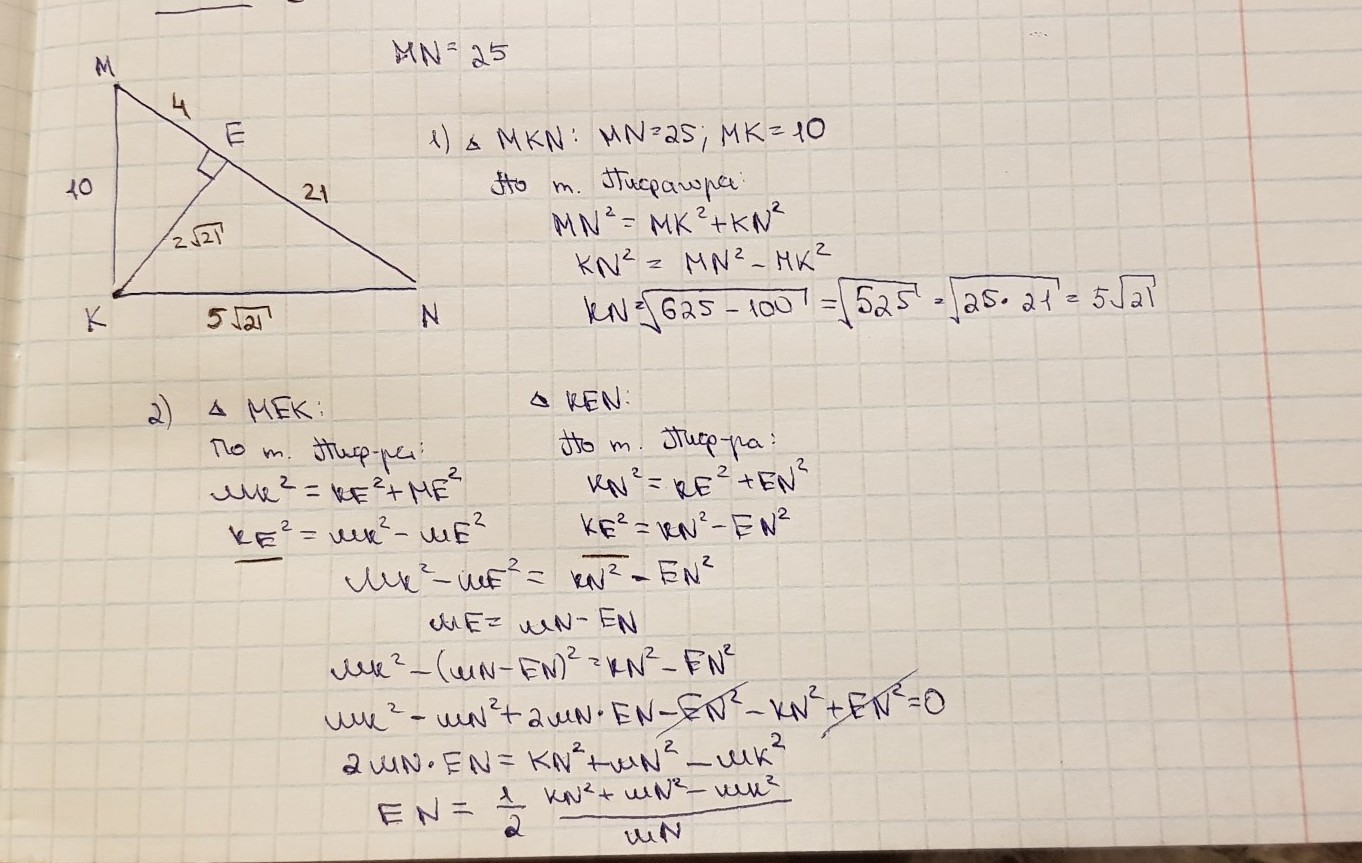 MN = 25
M
4
E
10
21
2√21
K
5√21
N
1) Δ MKN: MN=25; MK=10
По т. Пифагора:
MN² = MK² + KN²
KN² = MN² - MK²
KN = √625 - 100 = √525 = √25·21 = 5√21
2) Δ MEK:
По т. Пиф-ра:
MK² = KE² + ME²
KE² = MK² - ME²
Δ KEN:
По т. Пиф-ра:
KN² = KE² + EN²
KE² = KN² - EN²
MK² - ME² = KN² - EN²
ME = MN - EN
MK² - (MN - EN)² = KN² - EN²
MK² - MN² + 2MN·EN - EN² - KN² + EN² = 0
2MN·EN = KN² + MN² - MK²
EN = 1/2 (KN² + MN² - MK²)/MN